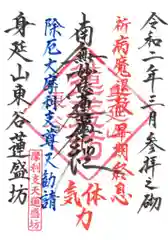 令和二年三月参拝之砌
祈病魔退散早期終息
南無妙法蓮華経
体
気力
除厄大摩利支尊天勧請
摩利支天蓮盛坊
身延山東谷蓮盛坊